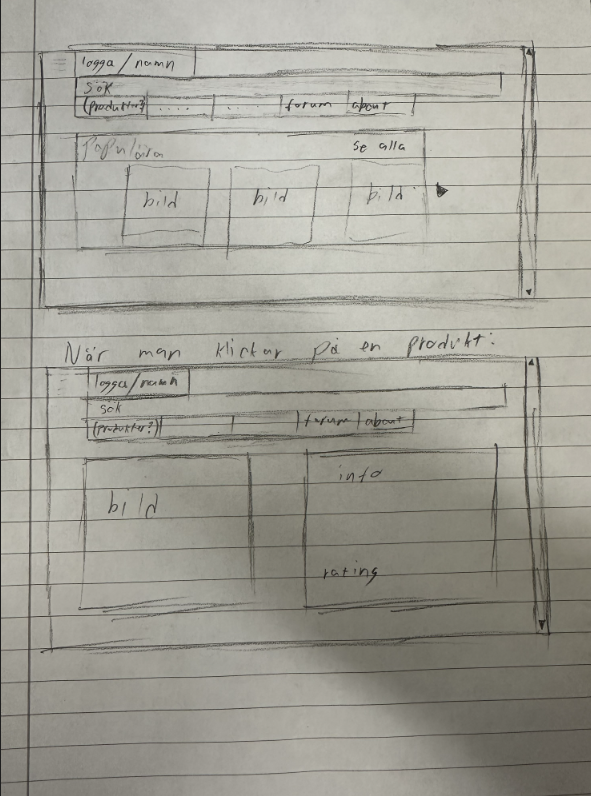 logga/namn
sök
(produkter?) ..... .... forum about
Populära se alla
bild bild bild
När man klickar på en produkt:
logga/namn
sök
(produkter?) forum about
bild info
rating